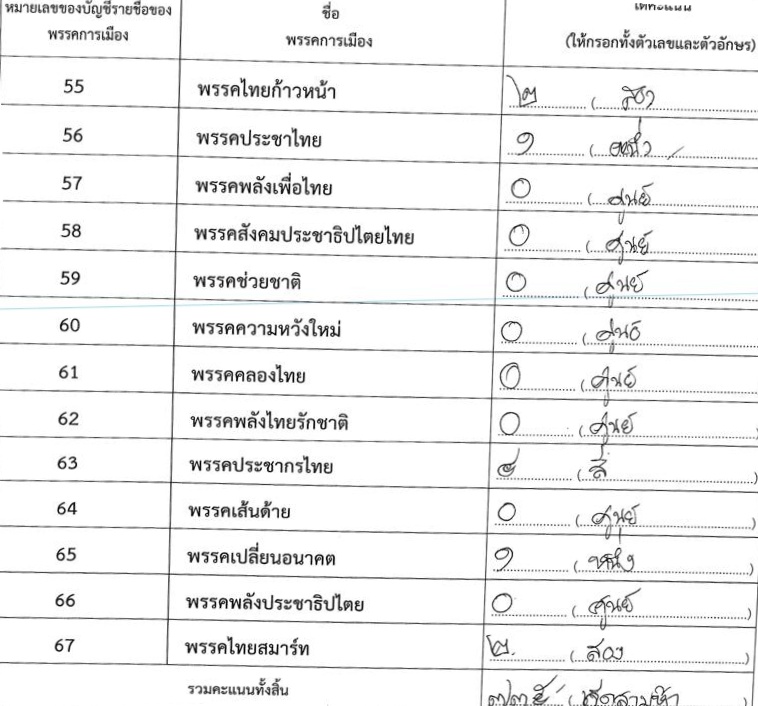 หมายเลขของบัญชีรายชื่อของ
พรรคการเมือง
ชื่อ
พรรคการเมือง
ได้คะแนน
(ให้กรอกทั้งตัวเลขและตัวอักษร)
55 พรรคไทยก้าวหน้า ๒ (สอง
56 พรรคประชาไทย ๑ (หนึ่ง
57 พรรคพลังเพื่อไทย ๐ (ศูนย์
58 พรรคสังคมประชาธิปไตยไทย ๐ (ศูนย์
59 พรรคช่วยชาติ ๐ (ศูนย์
60 พรรคความหวังใหม่ ๐ (ศูนย์
61 พรรคคลองไทย ๐ (ศูนย์
62 พรรคพลังไทยรักชาติ ๐ (ศูนย์)
63 พรรคประชากรไทย ๔ (สี่)
64 พรรคเส้นด้าย ๐ (ศูนย์)
65 พรรคเปลี่ยนอนาคต ๑ (หนึ่ง)
66 พรรคพลังประชาธิปไตย ๐ (ศูนย์)
67 พรรคไทยสมาร์ท ๒ (สอง)
รวมคะแนนทั้งสิ้น ๗๓๕ (เจ็ดสามห้า)